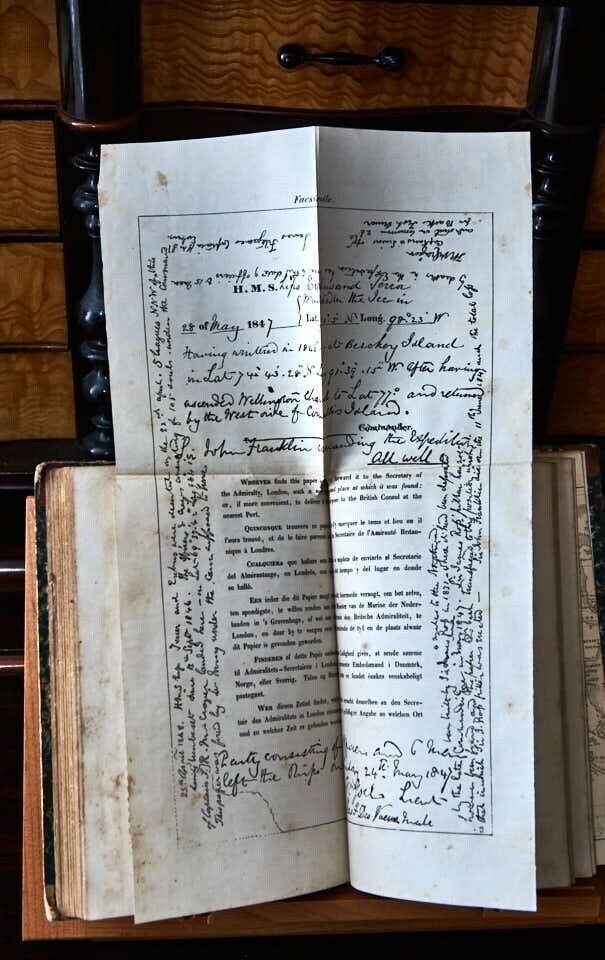 Facsimile.
H.M.S. hips Erebus and Terror
Wintered in the Ice in
28 of May 1847 Lat. 5' N Long. 98° 23' W
Having wintered in 1846 at Beechey Island
in Lat 74° 43'. 28" N Long 91. 39. 15" W after having
ascended Wellington to Lat 77° and returned
by the West side of Island.
Commander.
John Franklin commanding the Expedition
All well
WHOEVER finds this paper forward it to the Secretary of
the Admiralty, London, with a and place at which it was found:
or, if more convenient, to deliver per to the British Consul at the
nearest Port.
QUINCONQUE trouvera ce marquer le tems et lieu ou il
l'aura trouvé, et de le faire parvenir Secretaire de l'Amirauté Britan-
nique à Londres.
CUALQUIERA que hallare este plica de enviarlo al Secretario
del Almirantazgo, en Londrés, con tiempo y del lugar en donde
se halló.
EEN ieder die dit Papier mogt hiermede verzogt, om het zelve,
ten spoedigste, te willen zenden Minister van de Marine der Neder-
landen in 's Gravenhage, of wel den Britsche Admiraliteit, te
London, en daar by te voegen inhoudende de tyd en de plaats alwaar
dit Papier is gevonden geworden.
FINDEREN af dette Papiir ombedes, leilighed gives, at sende samme
til Admiralitets-Secretairen i London, næermeste Embedsmand i Danmark,
Norge, eller Sverrig. Tiden og Stædet er fundet önskes venskabeligt
paategnet.
WER diesen Zettel findet, ersucht denselben an den Secre-
tair des Admiralitets in London gefälliger Angabe an welchen Ort
und zu welcher Zeit er gefunden
Party consisting of officers and 6 Men
left the Ships on Monday 24th May 1847
Lieut,
Chas Des Vaeux Mate
25th April 1848 HMShips Terror and Erebus were deserted on the 22nd April. 5 leagues NNW of this
having been beset since 12th Sept. 1846. The officers & crews consisting of 105 souls under the command
of Captain F.R.M. Crozier landed here
This paper was found by Lt. Irving under the Cairn supposed to have
been built by Sir James Ross in 1831 4 miles to the Northward
where it had been deposited
by the late Commander Gore in June 1847. Sir James Ross' pillar has not
however been found, and the paper has been transferred to this position which
is that in which Sir J. Ross' pillar was erected — Sir John Franklin died on the 11th June 1847 and the total loss
by deaths in the Expedition has been to this date 9 officers & 15 Men.
James Fitzjames Captain HMS Erebus
F.R.M. Crozier
Captain & Senior Offr
and start on tomorrow 26
for Backs Fish River